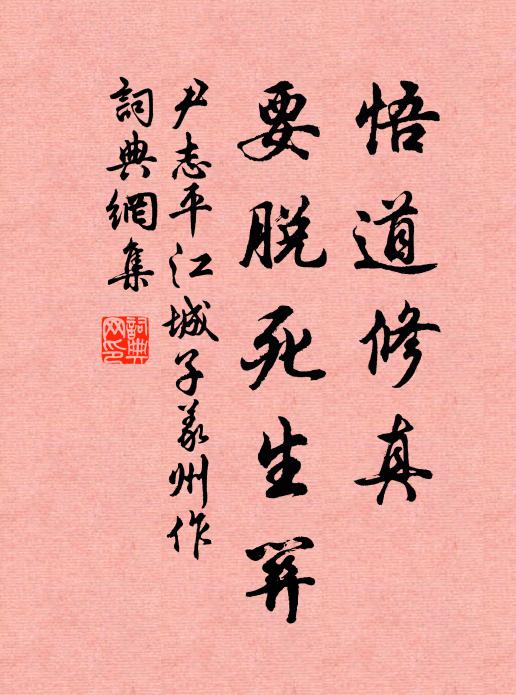 悟道修真
要脫死生
尹志平江城子義州作
詞典網集
詞典
网印